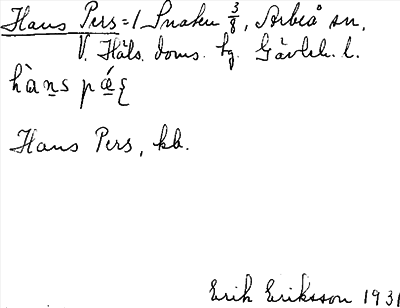 Hans Pers = 1 Snaku 3/8, Arbrå sn,
V. Häls. doms. hg. Gävleb. l.
hàn̲s pǽ̲ʂ
Hans Pers, kb.
Erik Eriksson 1931